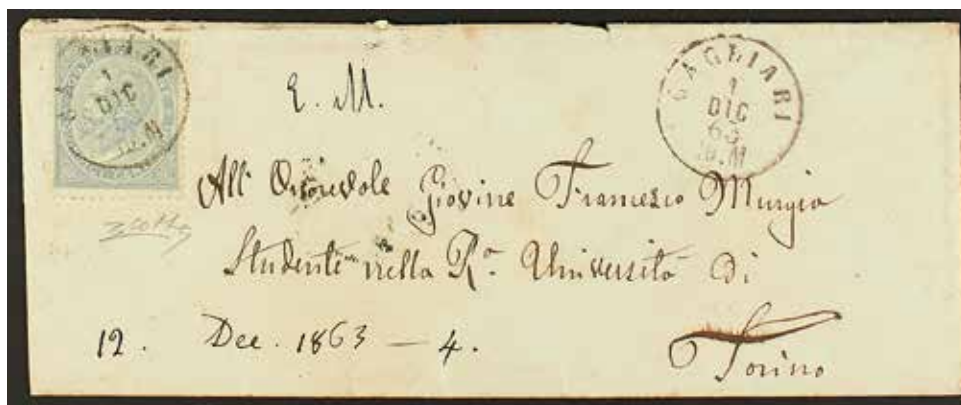 CAGLIARI
1
DIC
.M
E. M.
CAGLIARI
1
DIC
63
.M
All' Onorevole Giovine Francesco Murgia
Studente nella Rª. Università di
12. Dec. 1863 — 4.
Torino